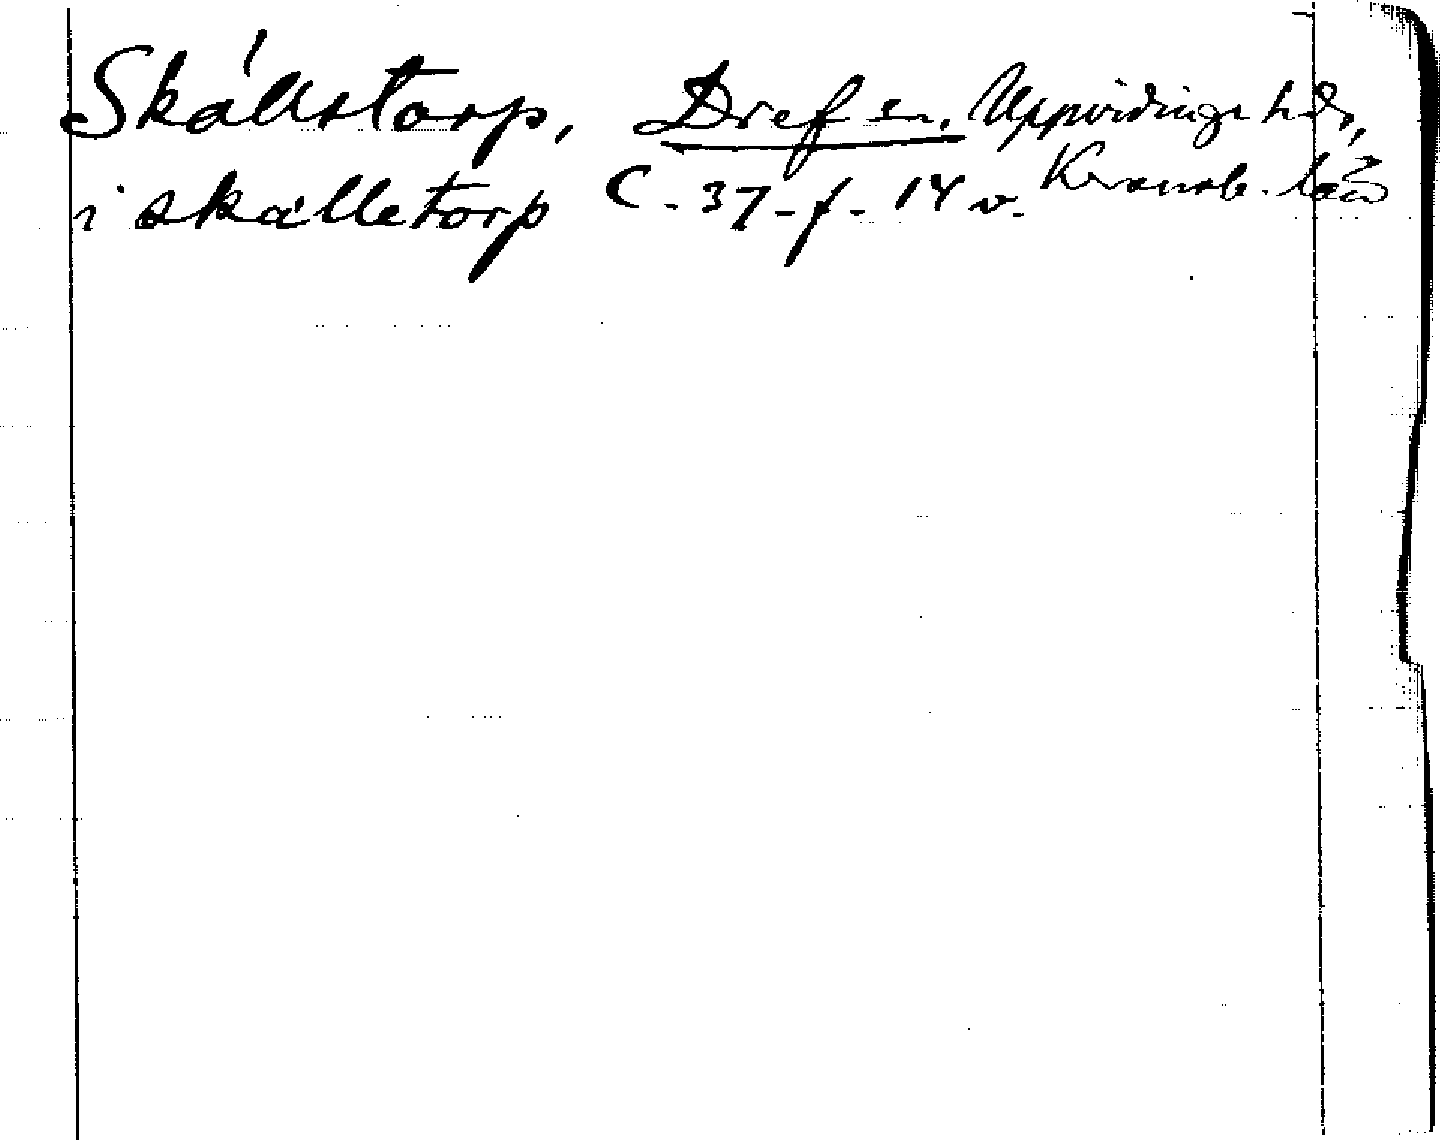 Skállstorp, Dref sn. Uppvidinge hd,
i skálletorp C - 37 - f - 14 v. Kronob. län